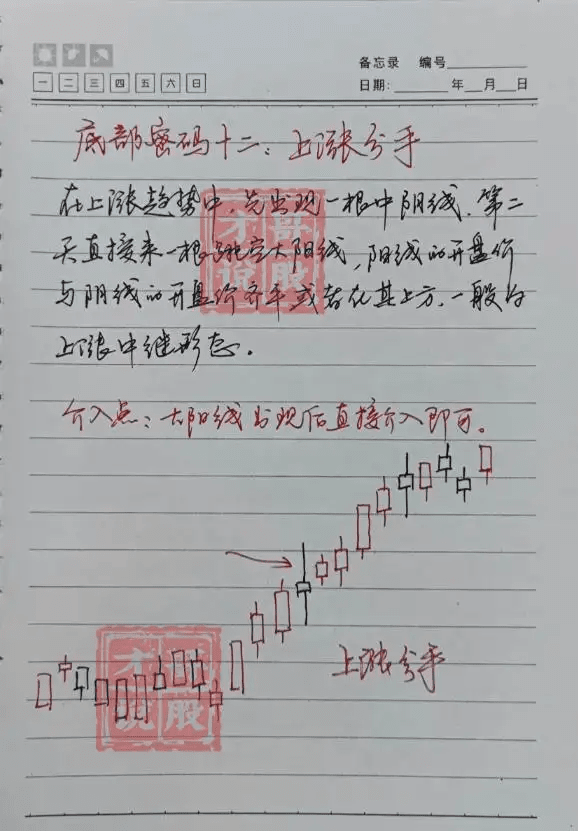 备忘录 编号
一 二 三 四 五 六 日
日期: 年 月 日
底部密码十二：上涨分手
在上涨趋势中，先出现一根中阴线，第二
天直接来一根跳空大阳线，阳线的开盘价
与阴线的开盘价齐平或者在其上方，一般为
上涨中继形态。
才哥说股
介入点：大阳线出现后直接介入即可。
上涨分手
才哥说股